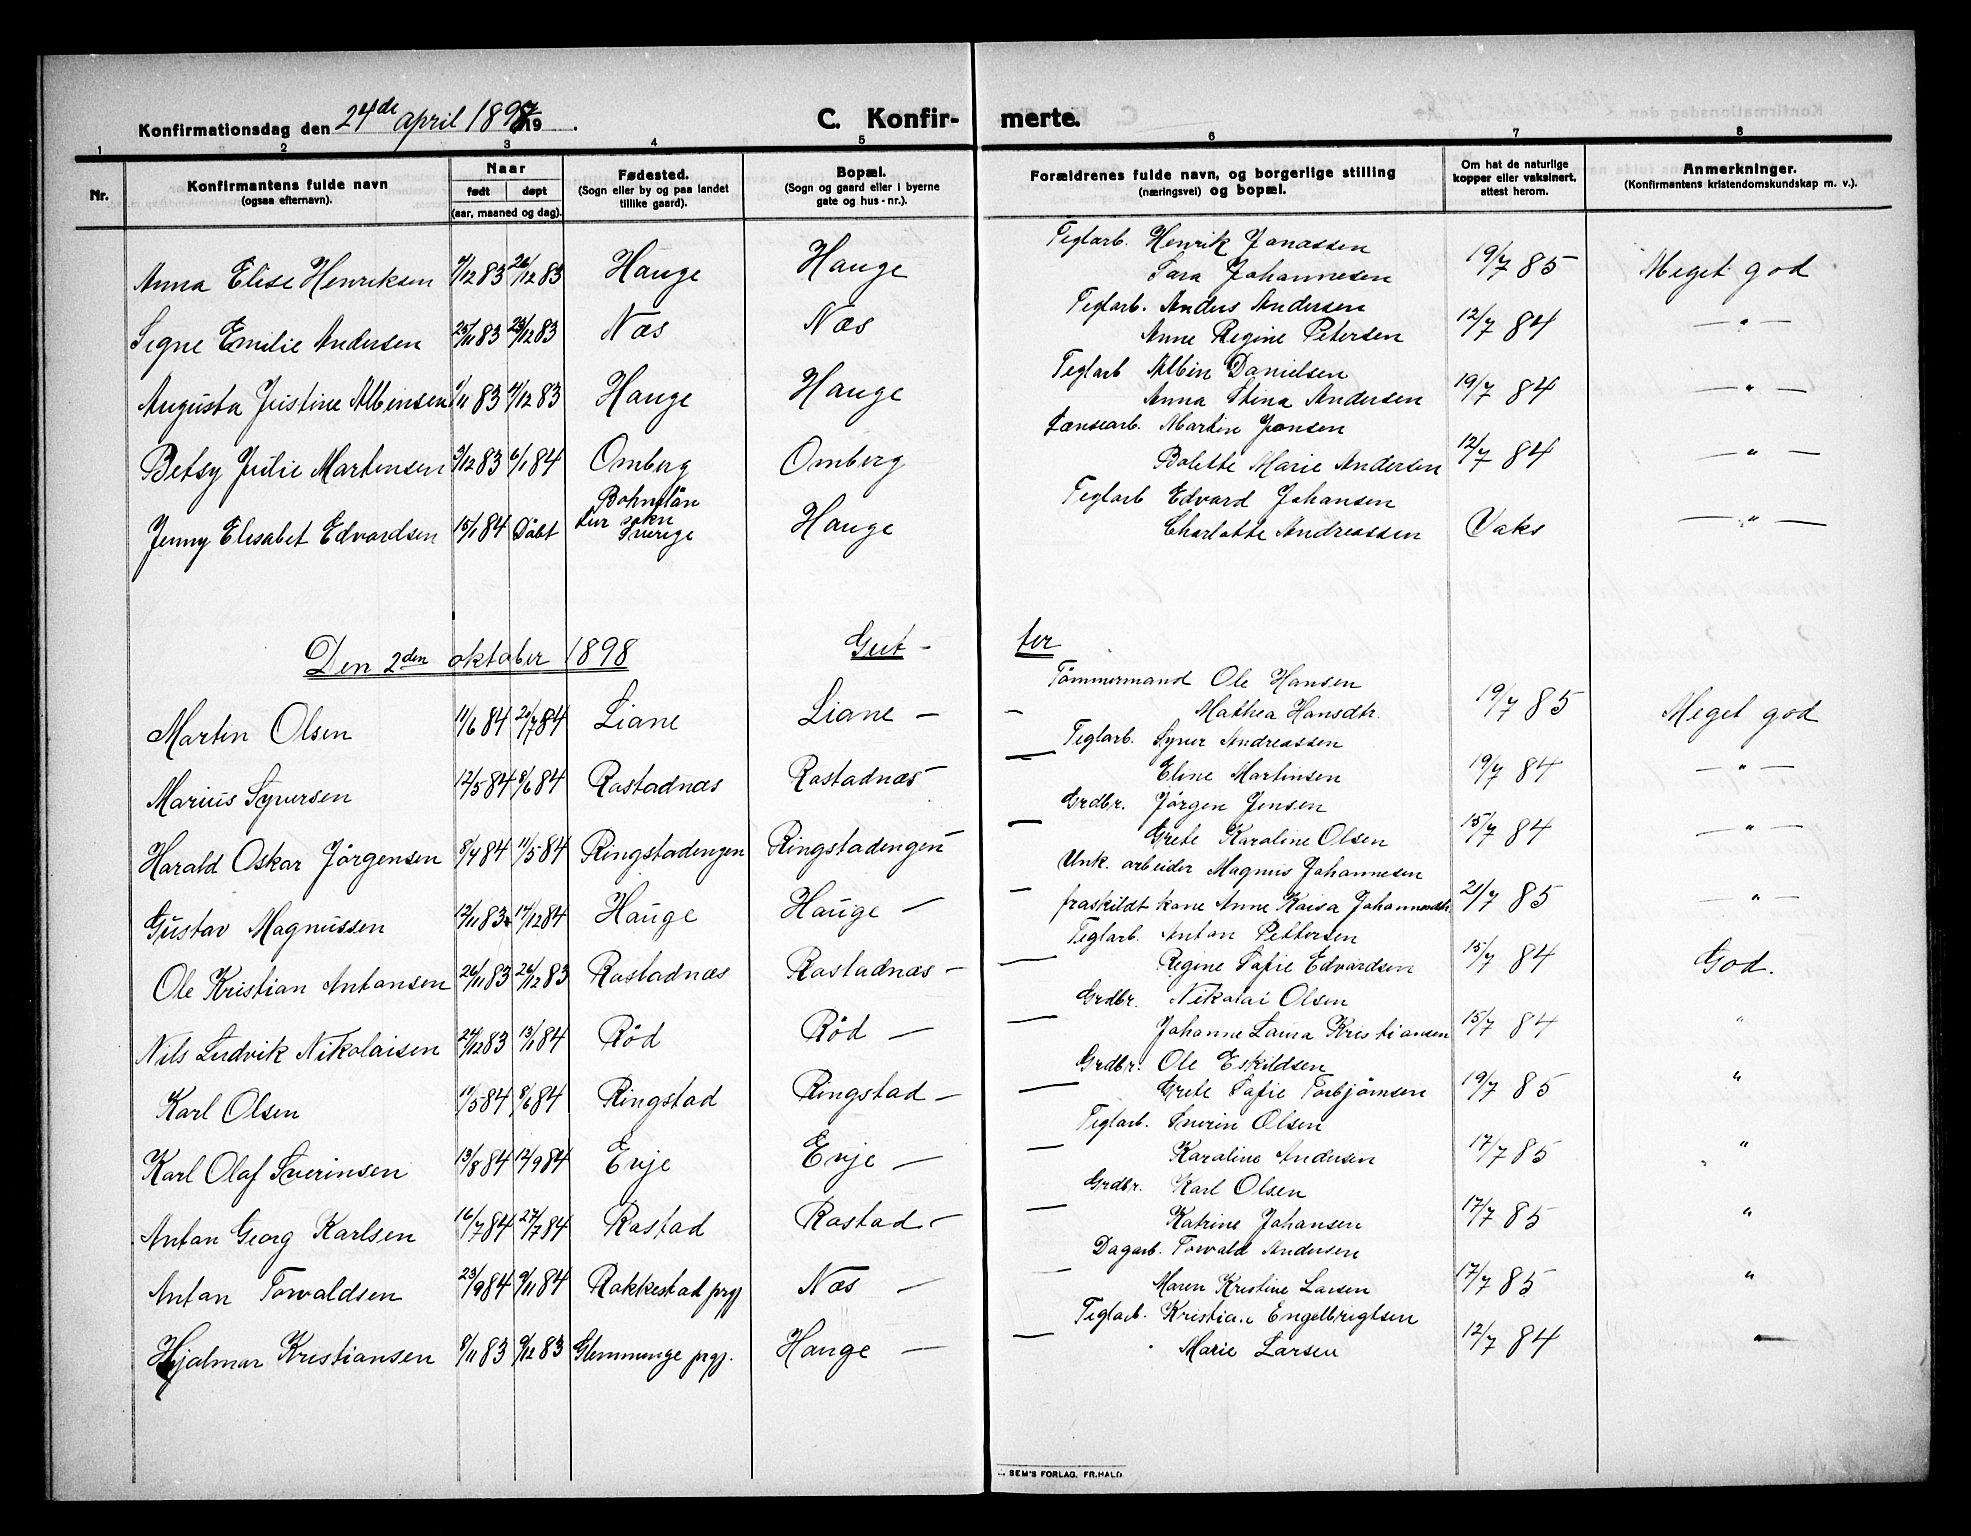 Konfirmationsdag den 24de april 1898 19
C. Konfir- merte.
1 2 3 4 5 6 7 8
Nr.
Konfirmantens fulde navn (ogsaa efternavn).
Naar født døpt (aar, maaned og dag).
Fødested. (Sogn eller by og paa landet tillike gaard).
Bopæl. (Sogn og gaard eller i byerne gate og hus-nr.).
Forældrenes fulde navn, og borgerlige stilling (næringsvei) og bopæl.
Om hat de naturlige kopper eller vaksinert, attest herom.
Anmerkninger. (Konfirmantens kristendomskundskap m. v.).
Anna Elise Henriksen 7/12 83 26/12 83 Hauge Hauge Teglarb. Henrik Jonassen
Sara Johannesen 19/7 85 Meget god
Signe Emilie Andersen 25/11 83 23/12 83 Næs Næs Teglarb. Anders Andersen
Anne Regine Petersen 12/7 84 — " —
Augusta Justine Albinsen 1/11 83 4/12 83 Hauge Hauge Teglarb Albin Danielsen
Anna Stina Andersen 19/7 84 — " —
Betsy Julie Martinsen 3/12 83 6/1 84 Omberg Omberg Lænsearb. Martin Jonsen
Bolette Marie Andersen 12/7 84 — " —
Jenny Elisabet Edvardsen 15/1 84 Døbt Bohuslän
Lur sokn
Sverige Hauge Teglarb Edvard Johansen
Charlotte Andreassen Vaks — " —
Den 2den oktober 1898 Gut - ter
Martin Olsen 11/6 84 20/7 84 Liane Liane — — Tömmermand Ole Hansen
Mathea Hansdtr. 19/7 85 Meget god
Marius Syversen 12/5 84 8/6 84 Rostadnæs Rostadnæs — — Teglarb. Syver Andreassen
Eline Martinsen 19/7 84 — " —
Harald Oskar Jörgensen 8/4 84 11/5 84 Ringstadengen Ringstadengen — — Grdbr. Jörgen Jensen
Grete Karoline Olsen 15/7 84 — " —
Gustav Magnussen 12/11 83 17/12 84 Hauge Hauge — — Unk. arbeider Magnus Johannesen
fraskildt kone Anne Kaisa Johannesdtr. 21/7 85 — " —
Ole Kristian Antonsen 26/11 83 26/12 83 Rostadnæs Rostadnæs — — Teglarb. Anton Pettersen
Regine Sofie Edvardsen 15/7 84 God.
Nils Ludvik Nikolaisen 24/12 83 13/1 84 Röd Röd — — Grdbr. Nikolai Olsen
Johanne Laura Kristiansen 15/7 84 "
Karl Olsen 11/5 84 8/6 84 Ringstad Ringstad — — Grdbr. Ole Eskildsen
Grete Sofie Torbjörnsen 19/7 85 "
Karl Olaf Severinsen 13/8 84 12/9 84 Evje Evje — — Teglarb. Severin Olsen
Karoline Andersen 17/7 85 "
Anton Georg Karlsen 16/7 84 27/7 84 Rostad Rostad — — Grdbr. Karl Olsen
Katrine Johansen 17/7 85 "
Anton Torvaldsen 23/9 84 9/11 84 Rakkestad prgj Næs — — Dagarb. Torvald Andersen
Maren Kristine Larsen 17/7 85 "
Hjalmar Kristiansen 8/11 83 9/12 83 Glemminge prgj. Hauge — — Teglarb. Kristian Engelbrigtsen
Marie Larsen 12/7 84 —
SEM'S FORLAG, FR.HALD